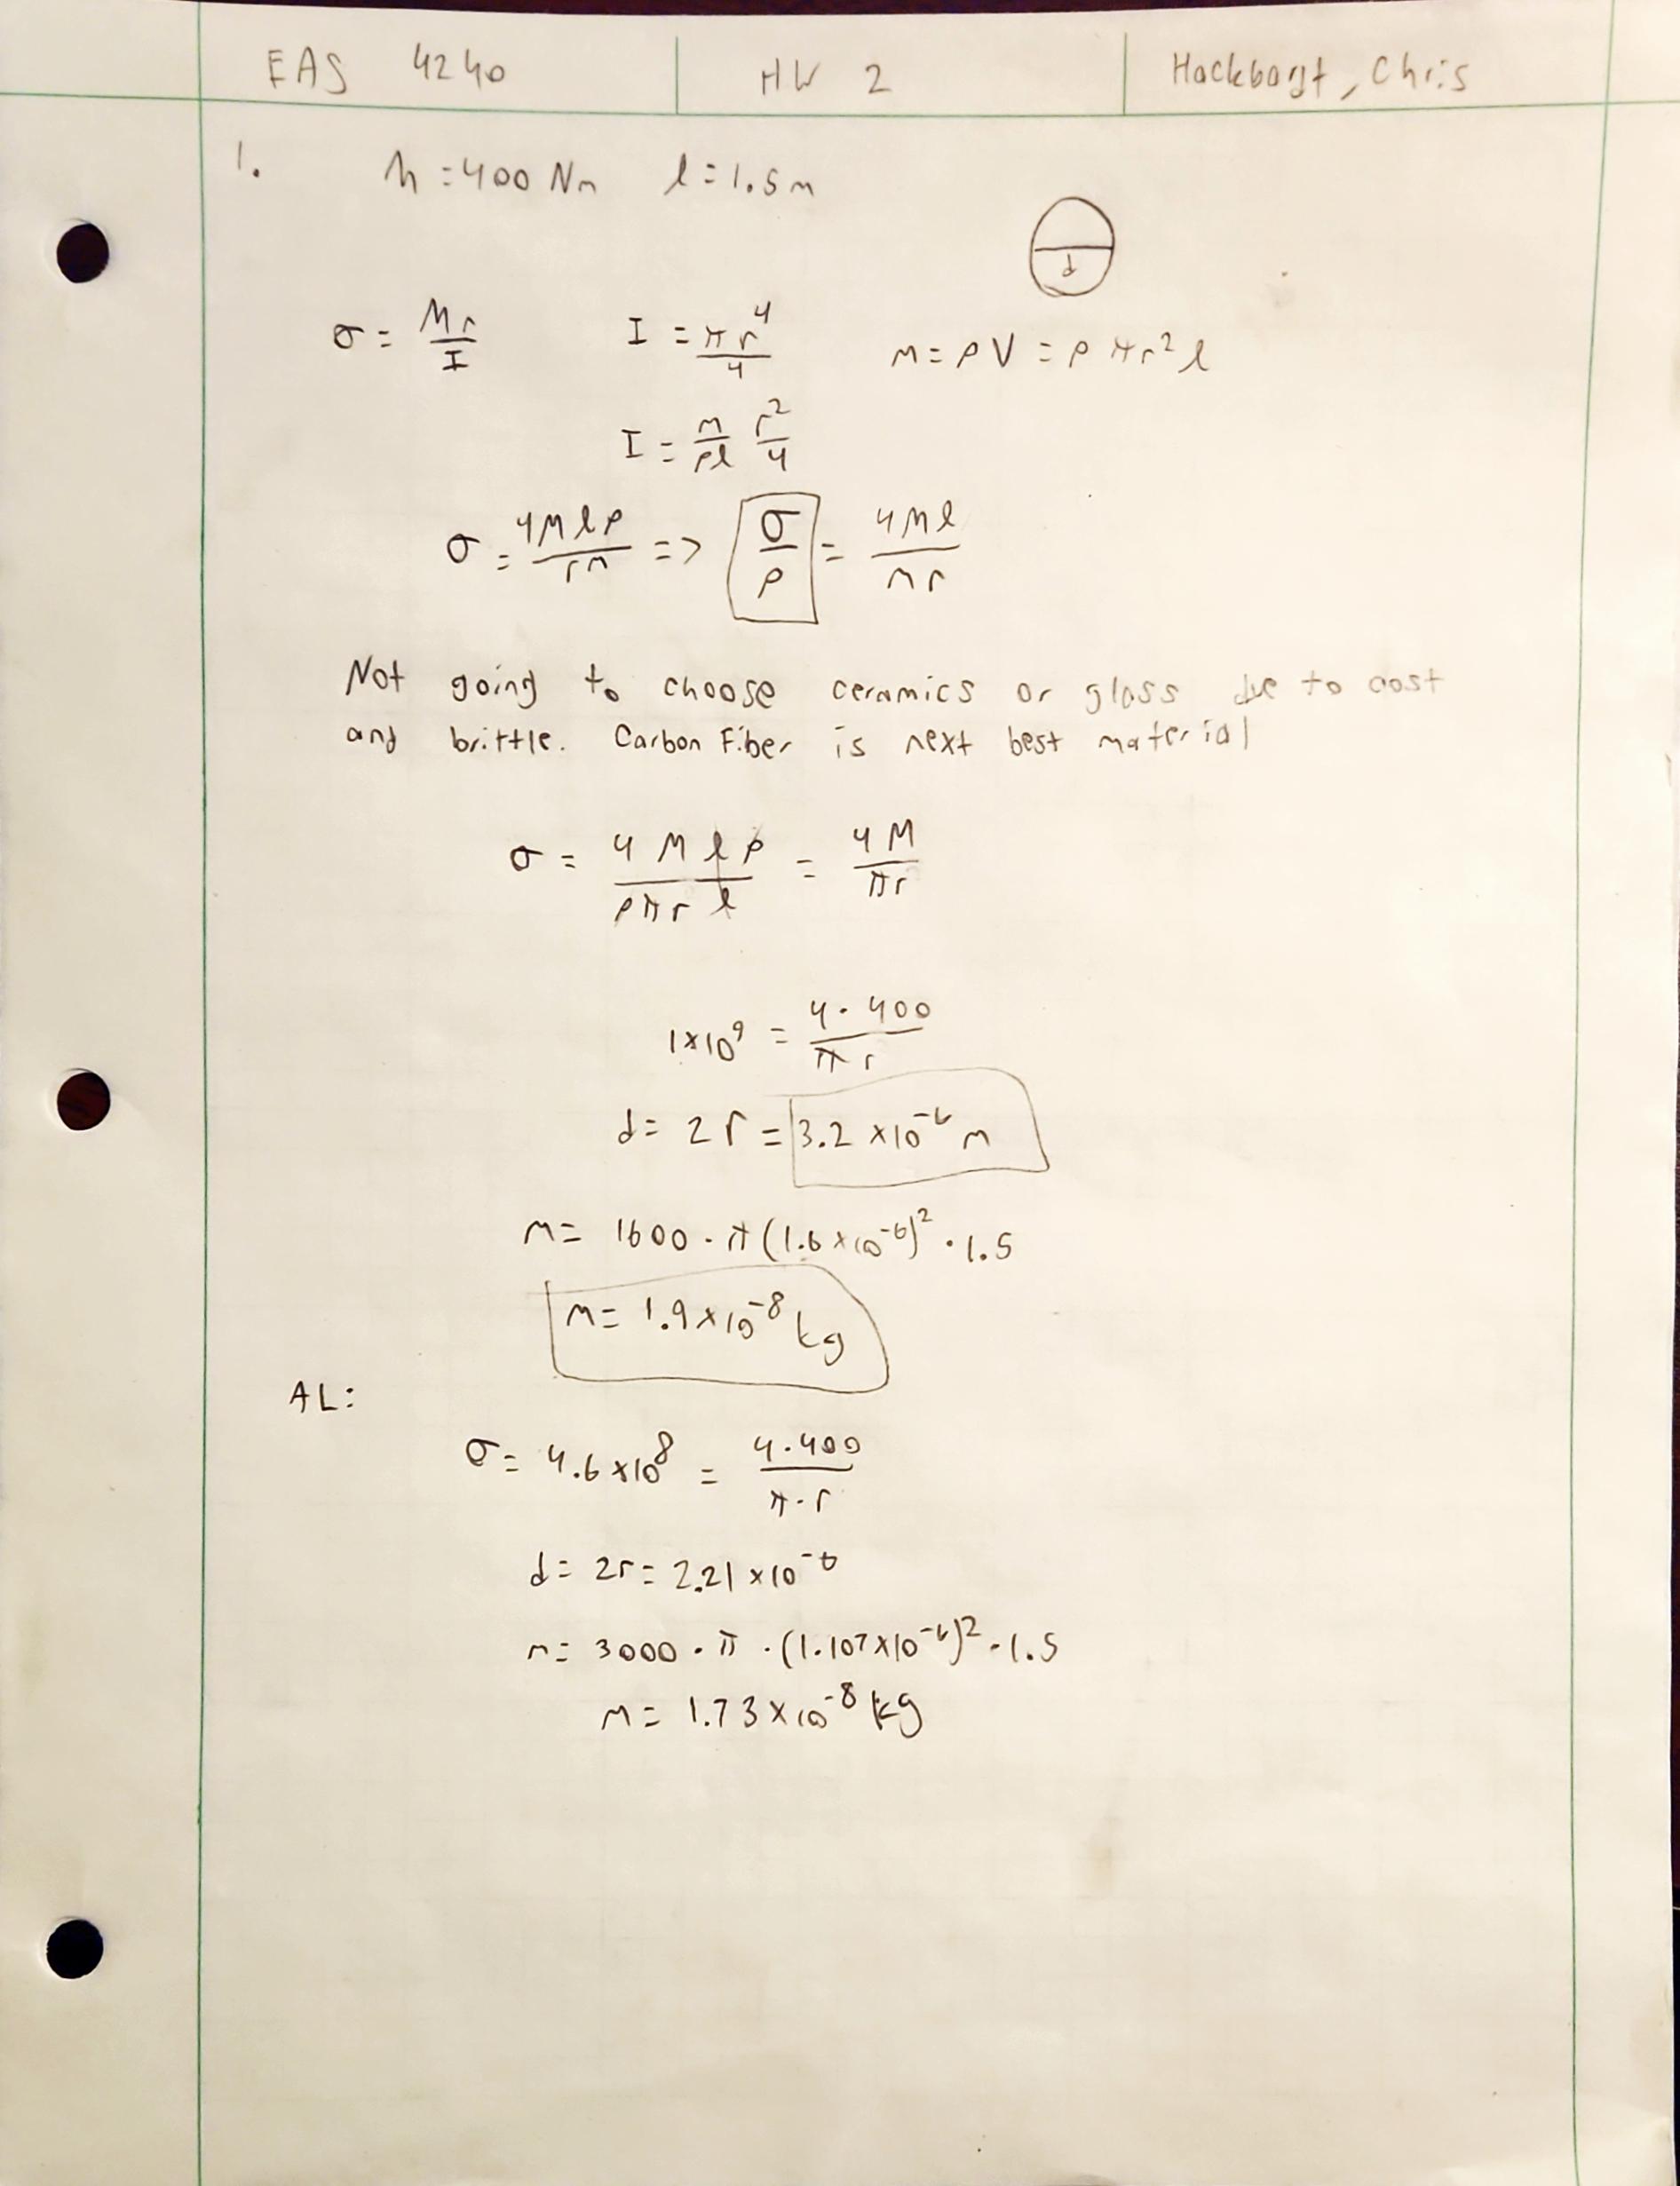 EAS 4240 HW 2 Hackbart, Chris
1. M = 400 Nm l = 1.5 m
d
σ = Mr/I I = πr^4/4 m = ρV = ρπr²l
I = m/ρl r²/4
σ = 4Mlρ/rm => σ/ρ = 4Ml/mr
Not going to choose ceramics or glass due to cost
and brittle. Carbon Fiber is next best material
σ = 4Mlρ/ρπrl = 4M/πr
1×10^9 = 4·400/πr
d = 2r = 3.2 ×10^-6 m
m = 1600 · π(1.6×10^-6)² · 1.5
m = 1.9×10^-8 kg
AL:
σ = 4.6×10^8 = 4·400/π·r
d = 2r = 2.21×10^-6
m = 3000 · π · (1.107×10^-6)² · 1.5
m = 1.73×10^-8 kg